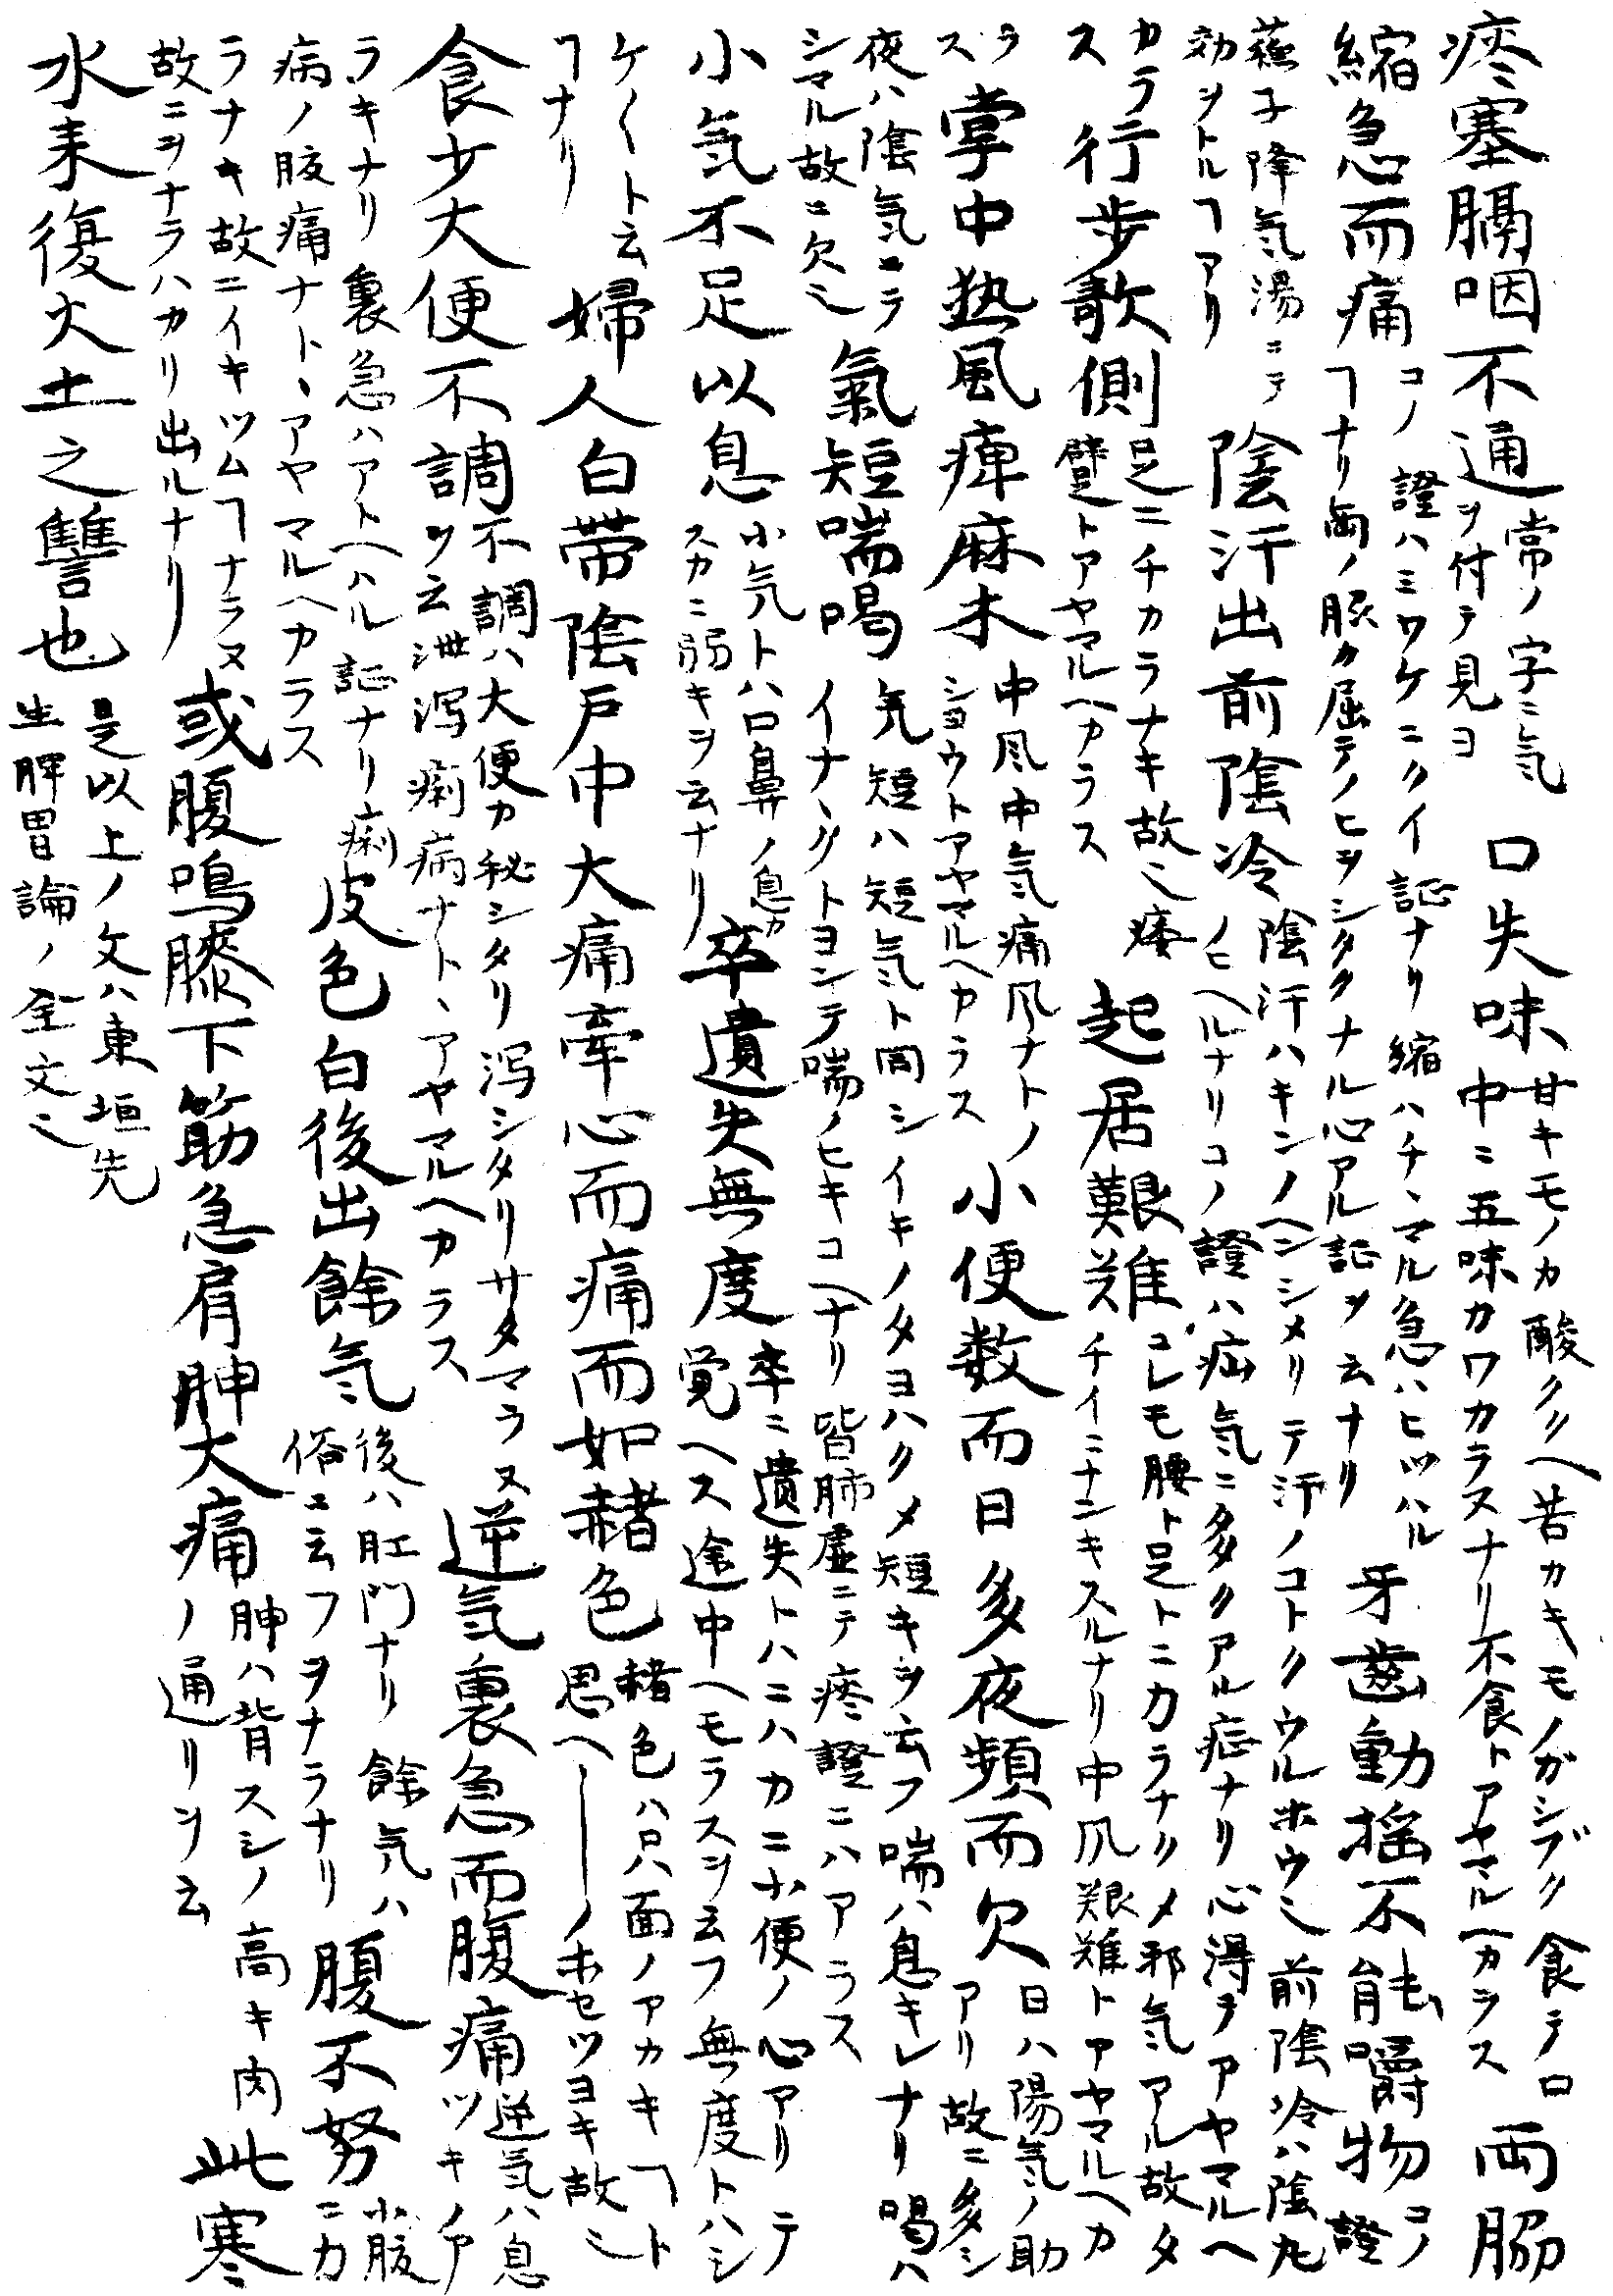 痰塞膈咽不通
常ノ字ニ気
ヲ付テ見ヨ
口失味
甘キモノカ酸クソヘ苦カキモノガシブク食テ口
中ニ五味カワカラスナリ不食トアヤマルヘカラス
両脇
縮急而痛
コノ證ハミワケニクイ証ナリ縮ハチヽマル急ハヒツハル
ヿナリ両ノ脇カ屈テノヒヲシタクナル心アル証ヲ云ナリ
牙齒動揺不能嚼物
コノ
證
蘓子降気湯ニテ
効ヲトルヿアリ
陰汗出前陰冷
陰汗ハキンノヘンシメリテ汗ノコトクウルホウ也前陰冷ハ陰丸
ノヒヘルナリコノ證ハ疝気ニ多クアル症ナリ心得ヲアヤマルヘ
カラ
ス
行歩欹側
足ニチカラナキ故也痿
躄トアヤマルヘカラス
起居艱難
コレモ腰ト足トニカラナクメ邪気アル故タ
チイニナンキスルナリ中風艱難トアヤマルヘカ
ラ
ス
掌中熱風痺麻木
中風中気痛風ナトノ
シヨウトアヤマルヘカラス
小便数而日多夜頻而欠
日ハ陽気ノ助
アリ故ニ多シ
夜ハ陰気ニテ
シマル故ニ欠也
氣短喘喝
気短ハ短気ト同シイキノタヨハクメ短キヲ云フ喘ハ息キレナリ喝ハ
イナヽクトヨンテ喘ノヒキコヘナリ皆肺虚ニテ痰證ニハアラス
小気不足以息
小気トハ口鼻ノ息カ
スカニ弱キヲ云ナリ
卒遺失無度
卒ニ遺失トハニハカニ小便ノ心アリテ
覚ヘス途中ヘモラスヲ云フ無度トハシ
ケ〱ト云
ヿナリ
婦人白帯陰戸中大痛牽心而痛而如赭色
赭色ハ只ハ面ノアカキヿト
思ヘ――ノホセツヨキ故也
食少大便不調
不調ハ大便カ秘シタリ瀉シタリサタマラヌ
ヲ云泄瀉痢病ナトヽアヤマルヘカラス
逆気裏急而腹痛
逆気ハ息
ツキノア
ラキナリ裏急ハアトヘハル証ナリ痢
病ノ腹痛ナトヽアヤマルヘカラス
皮色白後出餘気
後ハ肛門ナリ餘気ハ
俗ニ云フヲナラナリ
腹不努
小腹
ニカ
ラナキ故ニイキツムヿナラヌ
故ニヲナラハカリ出ルナリ
或腹鳴膝下筋急肩胛大痛
胛ハ背スシノ高キ肉
ノ通リヲ云
此寒
水来復火土之讐也
是以上ノ文ハ東垣先
生脾胃論ノ全文也